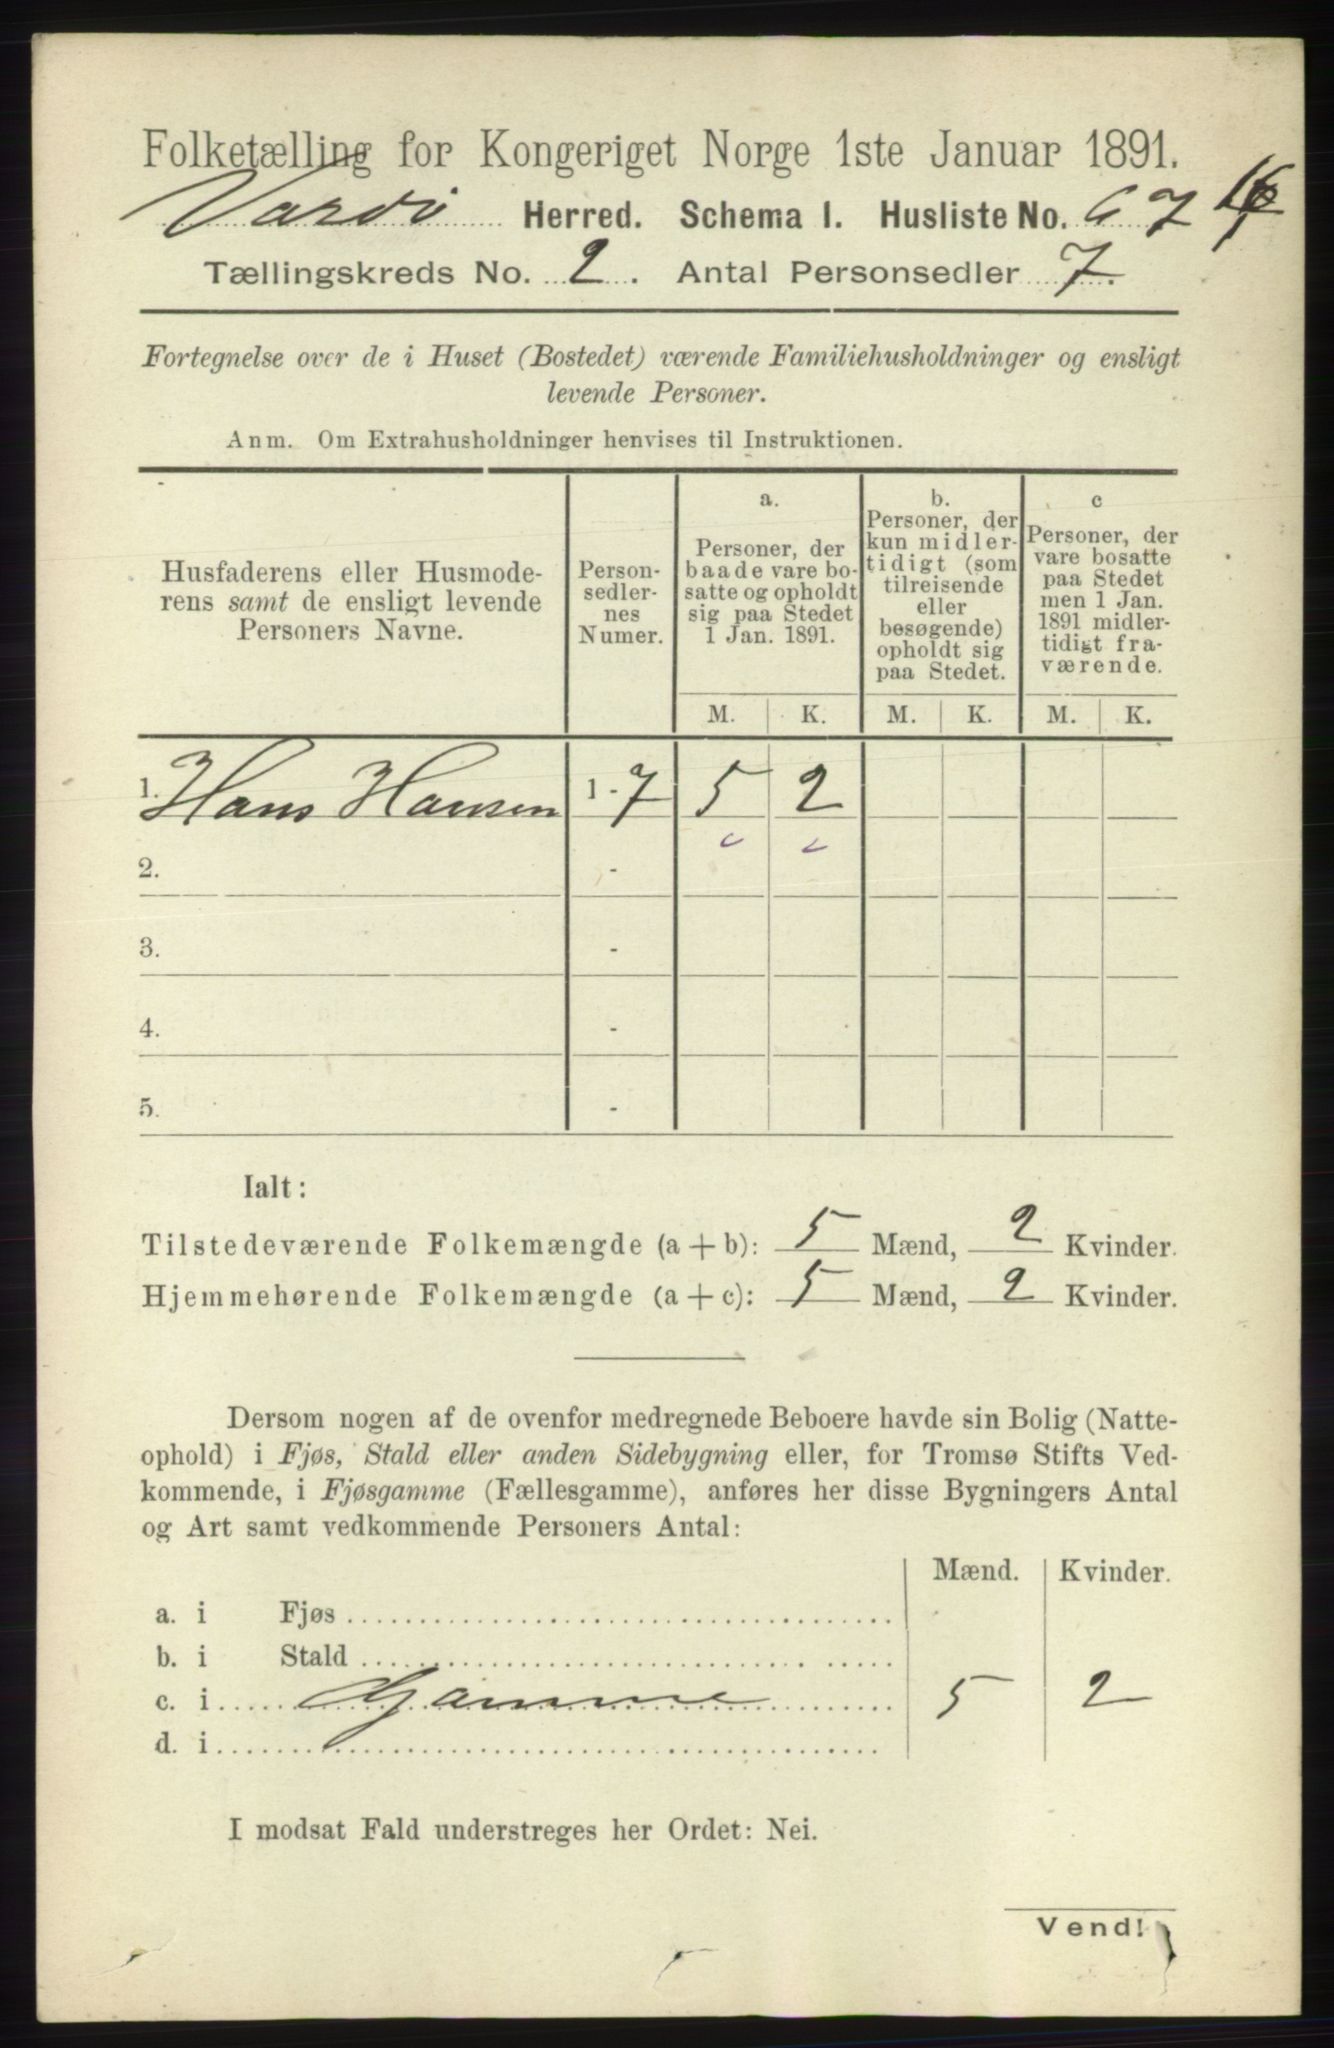 Folketælling for Kongeriget Norge 1ste Januar 1891.
Vardö Herred. Schema 1. Husliste No. 67
Tællingskreds No. 2. Antal Personsedler 7.
Fortegnelse over de i Huset (Bostedet) værende Familiehusholdninger og ensligt
levende Personer.
Anm. Om Extrahusholdninger henvises til Instruktionen.
Husfaderens eller Husmode-
rens samt de ensligt levende
Personers Navne.
Person-
sedler-
nes
Numer.
a.
Personer, der
baade vare bo-
satte og opholdt
sig paa Stedet
1 Jan. 1891.
b.
Personer, der
kun midler-
tidigt (som
tilreisende
eller
besøgende)
opholdt sig
paa Stedet.
c
Personer, der
vare bosatte
paa Stedet
men 1 Jan.
1891 midler-
tidigt fra-
værende.
M. K. M. K. M. K.
1. Hans Hansen 1 - 7 5 2
2. -
3. -
4. -
5. -
Ialt:
Tilstedeværende Folkemængde (a + b): 5 Mænd, 2 Kvinder.
Hjemmehørende Folkemængde (a + c): 5 Mænd, 2 Kvinder.
Dersom nogen af de ovenfor medregnede Beboere havde sin Bolig (Natte-
ophold) i Fjøs, Stald eller anden Sidebygning eller, for Tromsø Stifts Ved-
kommende, i Fjøsgamme (Fællesgamme), anføres her disse Bygningers Antal
og Art samt vedkommende Personers Antal:
Mænd. Kvinder.
a. i Fjøs
b. i Stald
c. i Gamme 5 2
d. i
I modsat Fald understreges her Ordet: Nei.
Vend!